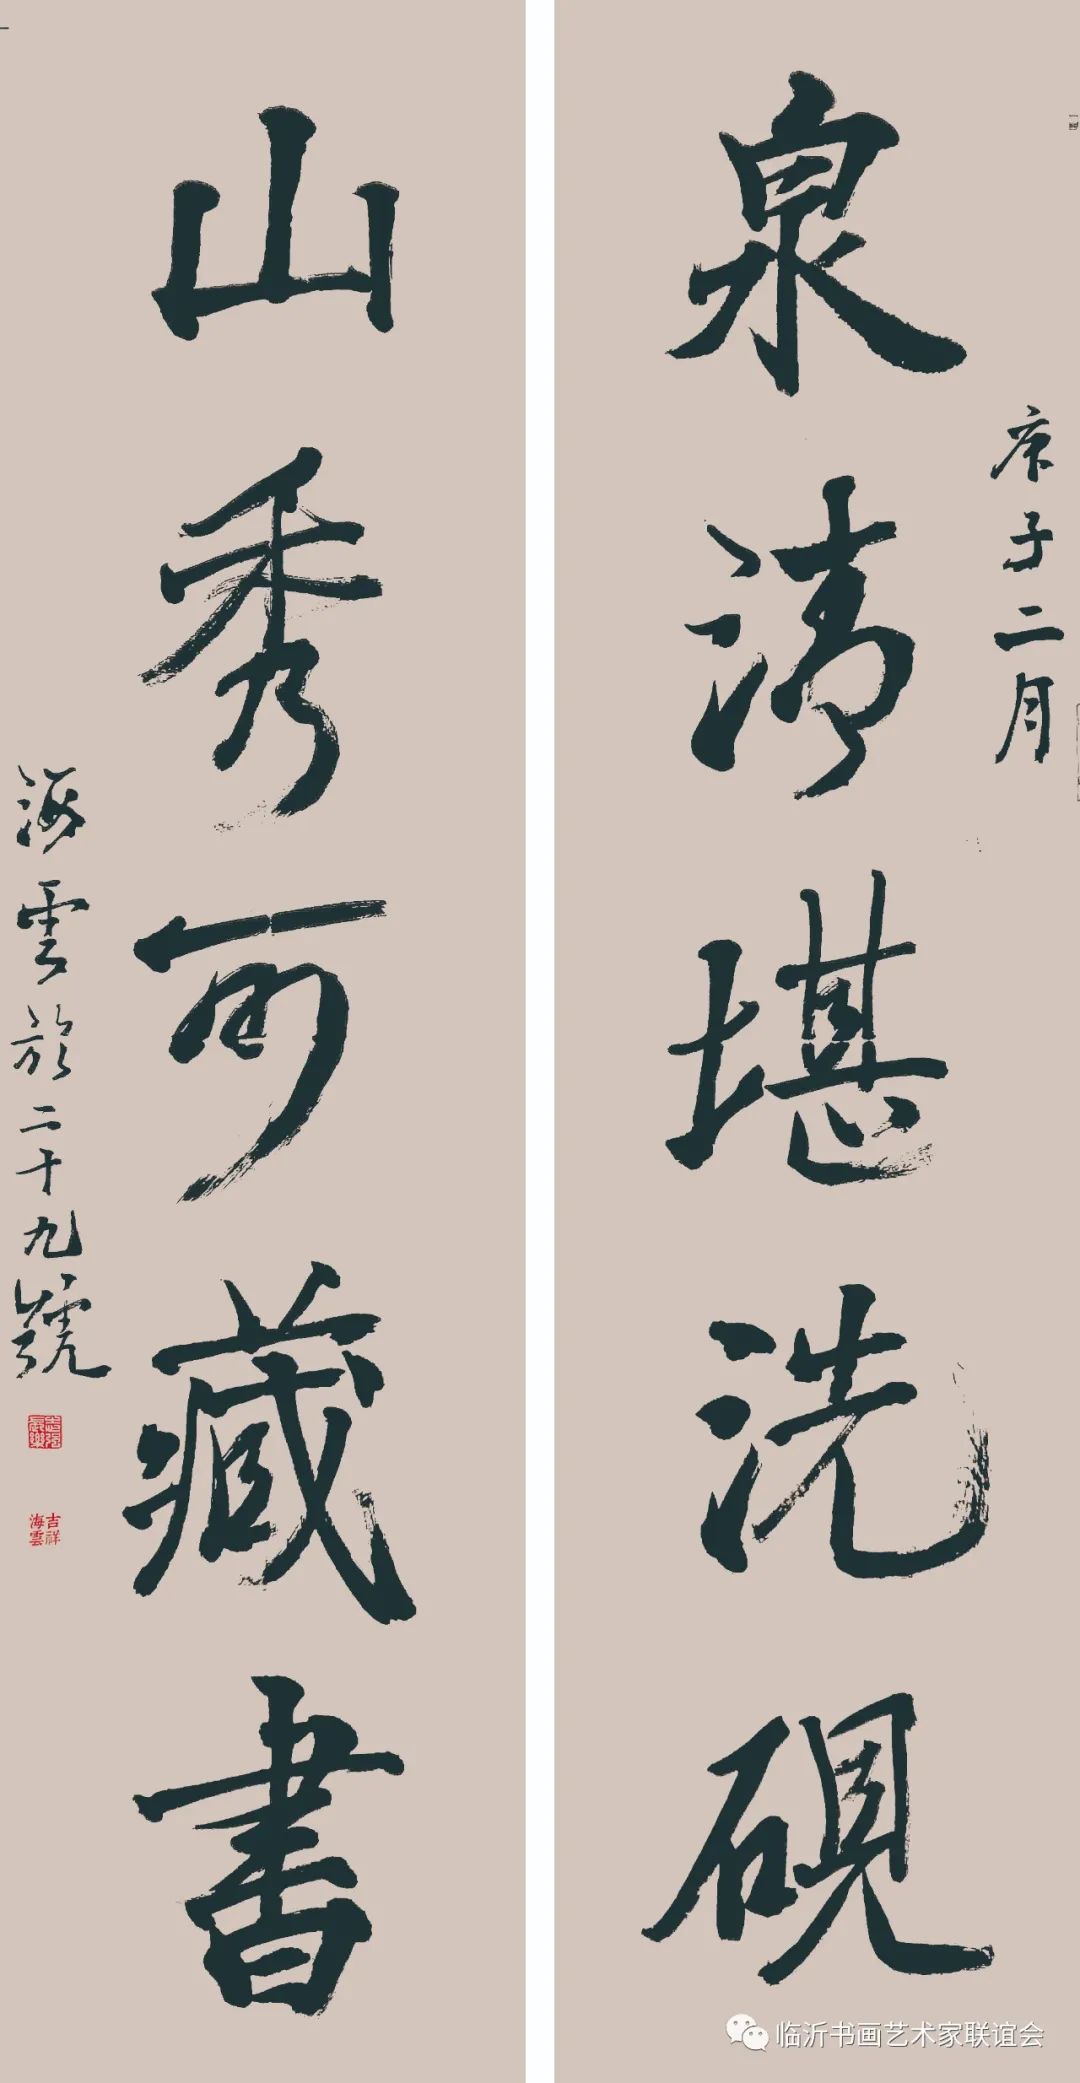 泉清堪洗硯
庚子二月
山秀可藏書
海雲於二十九號
吉祥
海雲
临沂书画艺术家联谊会